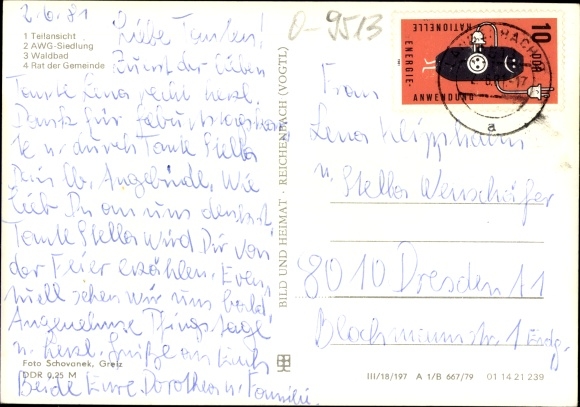 2.6.81
1 Teilansicht
2 AWG-Siedlung
3 Waldbad
4 Rat der Gemeinde
Liebe Tanten!
Zuerst der lieben
Tante Lena recht herzl.
Dank für Geburtstagskar-
te u. durch Tante Stella
Dein lb. Angebinde. Wie
lieb Du an uns denkst.
Tante Stella wird Dir von
der Feier erzählen. Even-
tuell sehen wir uns bald.
Angenehme Pfingsttage
u. herzl. Grüße an Euch
Beide Eure Dorothea u. Familie.
Foto Schovanek, Greiz
DDR 0,25 M
BILD UND HEIMAT · REICHENBACH (VOGTL)
0-9513
10 DDR
NATIONELLE
ENERGIE-
ANWENDUNG
a
Frau
Lena Klipphahn
u. Stella Wenschöfer
8010 Dresden 11
Blochmannstr. 1 Erdg.
III/18/197 A 1/B 667/79 01 14 21 239